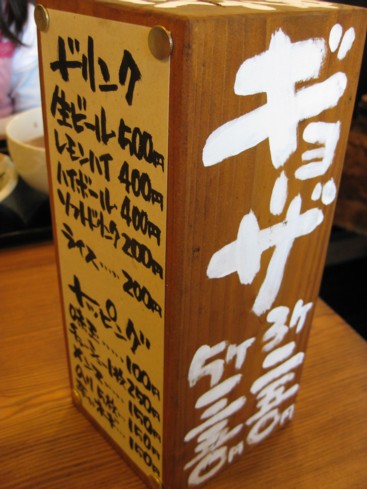 ドリンク
生ビール 500円
レモンハイ 400円
ハイボール 400円
ソフトドリンク 200円
ライス…… 200円
トッピング
味玉…… 100円
チャーシュー 250円
メンマ…… 150円
のり5枚 150円
ネギ 150円
ギョーザ
3ケ 二四〇円
5ケ